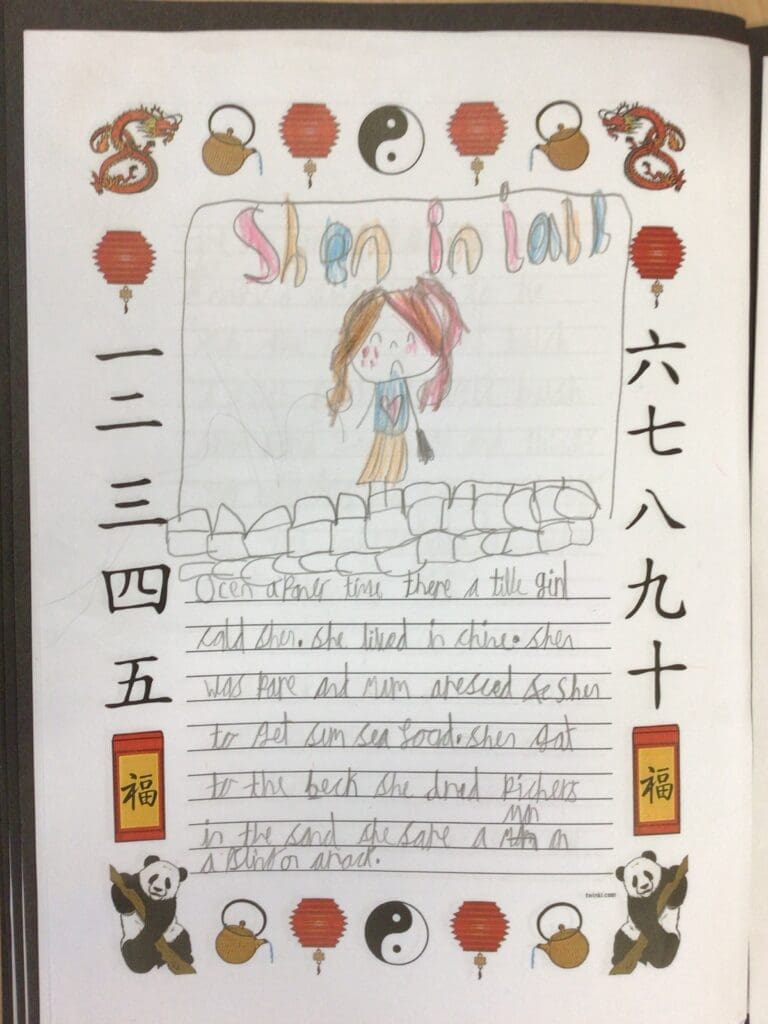 Shen in jall
一
二
三
四
五
六
七
八
九
十
Ocen aponer time there a tille girl
cald shen. she lived in chine. shen
was pare and mum aresced shen
to get sum sea food. shen gat
to the beck she drud pichers
in the sand she sare a man on
a
福
福
twinkl.com